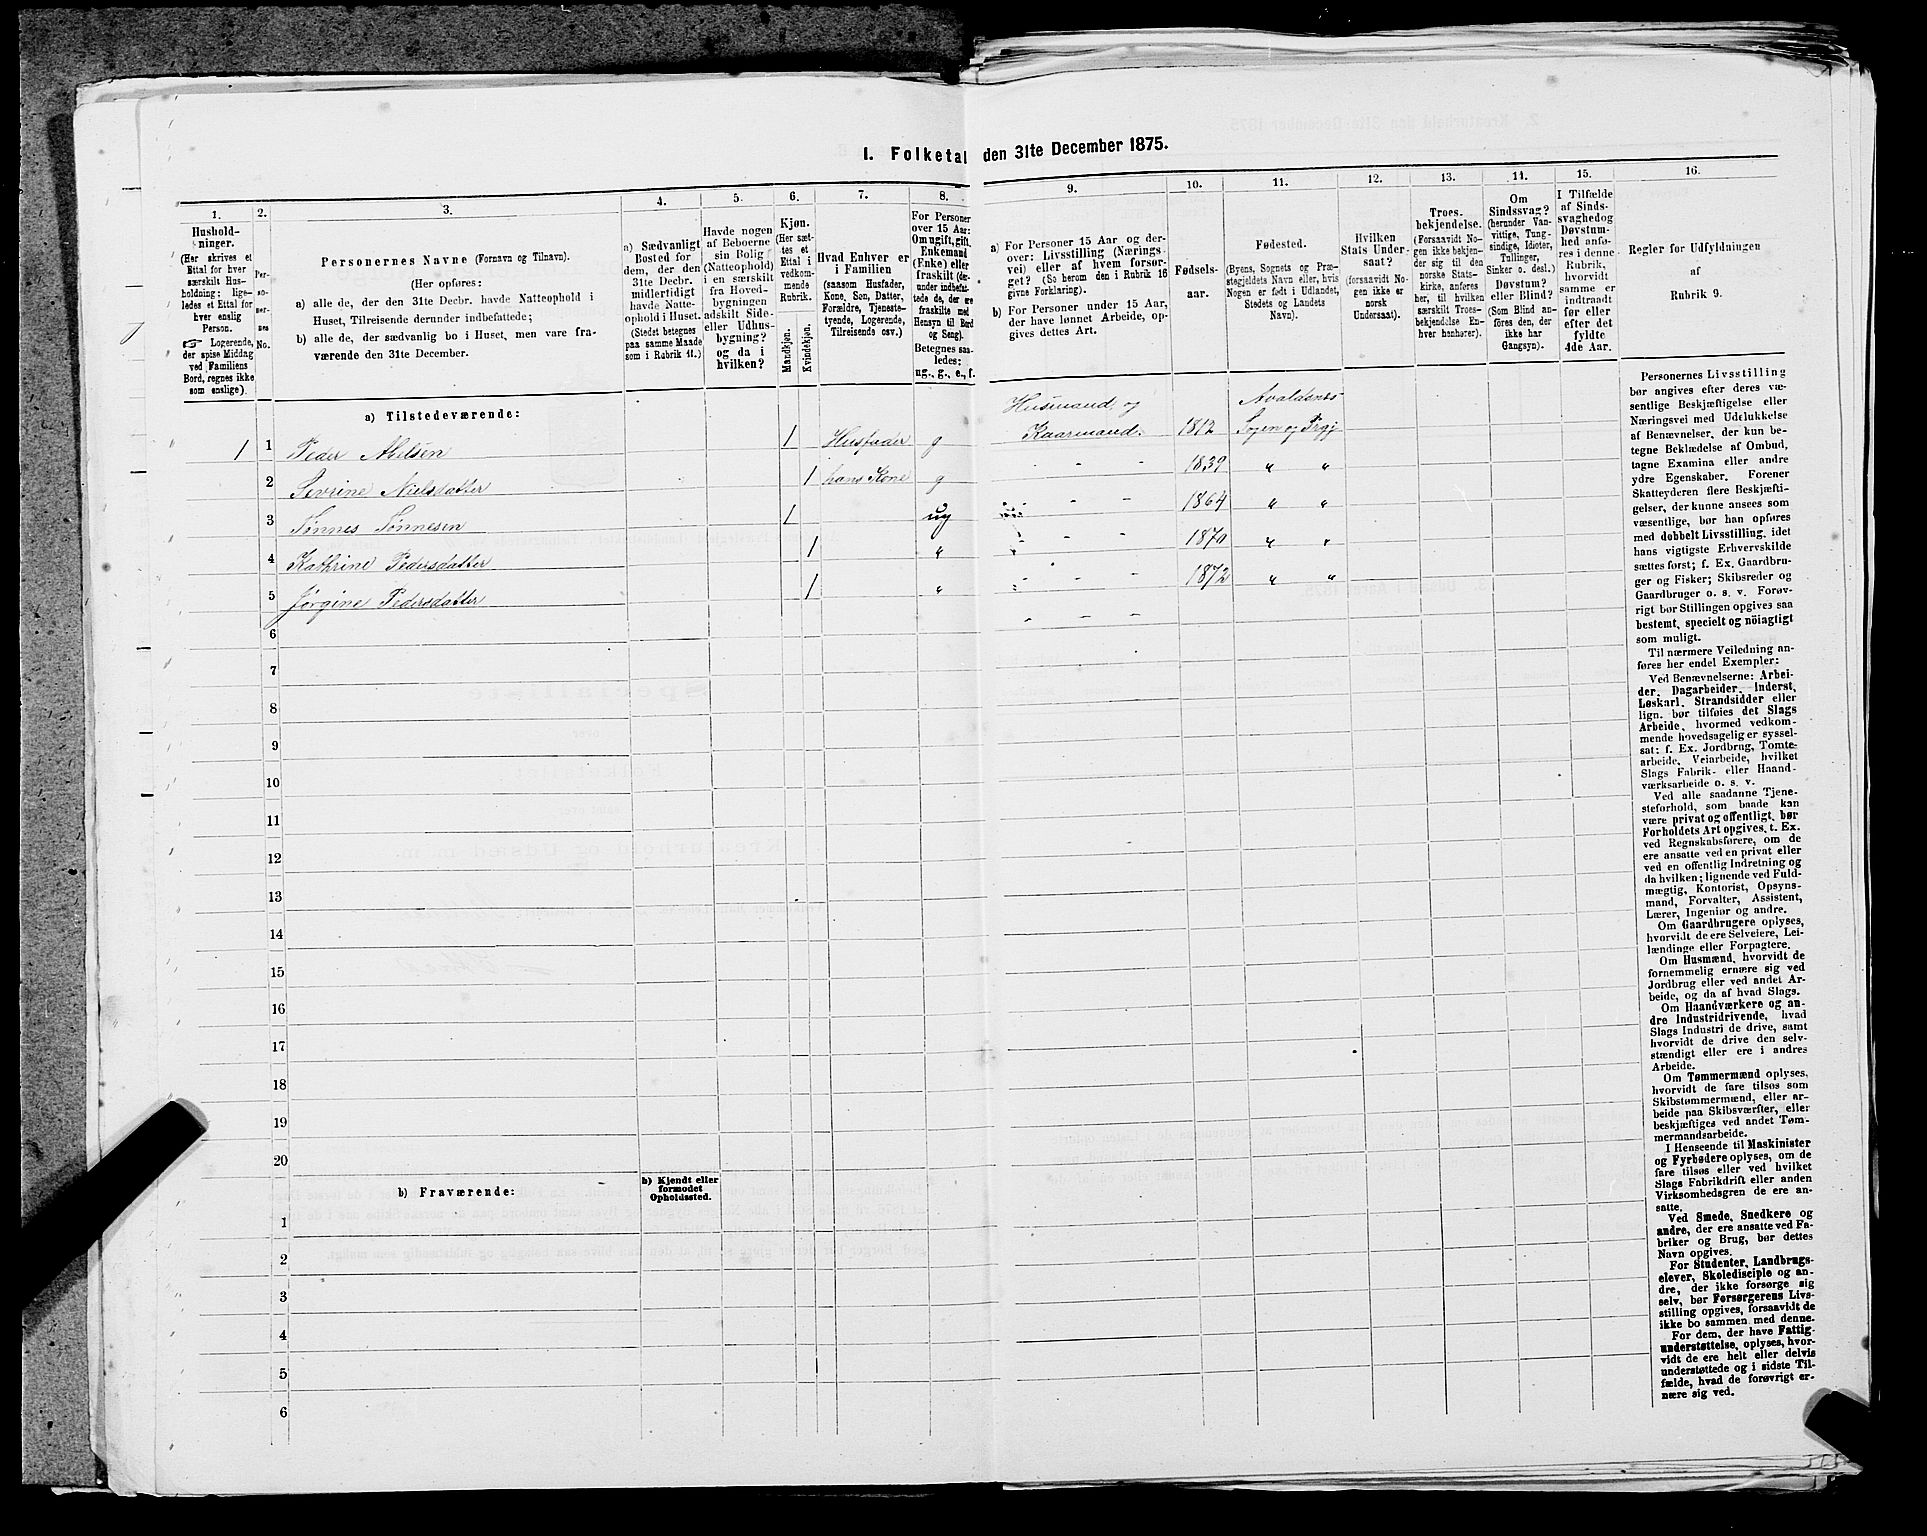 I. Folketal den 31te December 1875.
1.
Hushold-
ninger.
(Her skrives et
Ettal for hver
særskilt Hus-
holdning; lige-
ledes et Ettal for
hver enslig
Person.
☞ Logerende,
der spise Middag
ved Familiens
Bord, regnes ikke
som enslige).
2.
Per-
so-
ner-
nes
No.
3.
Personernes Navne (Fornavn og Tilnavn).
(Her opføres:
a) alle de, der den 31te Decbr. havde Natteophold i
Huset, Tilreisende derunder indbefattede;
b) alle de, der sædvanlig bo i Huset, men vare fra-
værende den 31te December.
4.
a) Sædvanligt
Bosted for
dem, der den
31te Decbr.
midlertidigt
havde Natte-
ophold i Huset.
(Stedet betegnes
paa samme Maade
som i Rubrik 11.)
5.
Havde nogen
af Beboerne
sin Bolig
(Natteophold)
i en særskilt
fra Hoved-
bygningen
adskilt Side-
eller Udhus-
bygning?
og da i
hvilken?
6.
Kjøn.
(Her sæt-
tes et
Ettal i
vedkom-
mende
Rubrik.
Mandkjøn.
Kvindekjøn.
7.
Hvad Enhver er
i Familien
(saasom Husfader,
Kone, Søn, Datter,
Forældre, Tjeneste-
tyende, Logerende,
Tilreisende osv.)
8.
For Personer
over 15 Aar:
Om ugift, gift,
Enkemand
(Enke) eller
fraskilt (der-
under indbefat-
tede de, der ere
fraskilte med
Hensyn til Bord
og Seng).
Betegnes saa-
ledes:
ug., g., e., f.
9.
a) For Personer 15 Aar og der-
over: Livsstilling (Nærings-
vei) eller af hvem forsør-
get? (So herom den i Rubrik 16
givne Forklaring).
b) For Personer under 15 Aar,
der have lønnet Arbeide, op-
gives dettes Art.
10.
Fødsels-
aar.
11.
Fødested.
(Byens, Sognets og Præ-
stegjeldets Navn eller, hvis
Nogen er født i Udlandet,
Stedets og Landets
Navn).
12.
Hvilken
Stats Under-
saat?
(forsaavidt No-
gen ikke er
norsk
Undersaat).
13.
Troes-
bekjendelse.
(Forsaavidt No-
gen ikke bekjen-
der sig til den
norske Stats-
kirke, anføres
her, til hvilken
særskilt Troes-
bekjendelse En-
hver henhører).
14.
Om
Sindssvag?
(herunder Van-
vittige, Tung-
sindige, Idioter,
Tullinger,
Sinker o. desl.)
Døvstum?
eller Blind?
(Som Blind an-
føres den, der
ikke har
Gangsyn).
15.
I Tilfælde
af Sinds-
svaghed og
Døvstum-
hed anfø-
res i denne
Rubrik,
hvorvidt
samme er
indtraadt
før eller
efter det
fyldte
4de Aar.
16.
Regler for Udfyldningen
af
Rubrik 9.
a) Tilstedeværende:
Husmand og Avaldsnes
1 1 Peder Nielsen 1 Husfader g Kaarmand. 1812 Sogn og Prgj
2 Sevrine Nielsdatter 1 hans Kone g - - 1839 " "
3 Tønnes Tønnesen 1 ug - - 1864 " "
4 Kathrine Pedersdatter 1 " - - 1870 " "
5 Jørgine Pedersdatter 1 " - - 1872 " "
6
7
8
9
10
11
12
13
14
15
16
17
18
19
20
b) Fraværende:
b) Kjendt eller
formodet
Opholdssted.
1
2
3
4
5
6
Personernes Livsstilling
bør angives efter deres væ-
sentlige Beskjæftigelse eller
Næringsvei med Udelukkelse
af Benævnelser, der kun be-
tegne Beklædelse af Ombud,
tagne Examina eller andre
ydre Egenskaber. Forener
Skatteyderen flere Beskjæfti-
gelser, der kunne ansees som
væsentlige, bør han opføres
med dobbelt Livsstilling, idet
hans vigtigste Erhvervskilde
sættes først; f. Ex. Gaardbru-
ger og Fisker; Skibsreder og
Gaardbruger o. s. v. Forøv-
rigt bør Stillingen opgives saa
bestemt, specielt og nöiagtigt
som muligt.
Til nærmere Veiledning an-
føres her endel Exempler:
Ved Benævnelserne: Arbei-
der, Dagarbeider, Inderst,
Løskarl, Strandsidder eller
lign. bør tilføies det Slags
Arbeide, hvormed vedkom-
mende hovedsagelig er syssel-
sat; f. Ex. Jordbrug, Tomte-
arbeide, Veiarbeide, hvilket
Slags Fabrik- eller Haand-
værksarbeide o. s. v.
Ved alle saadanne Tjene-
steforhold, som baade kan
være privat og offentligt, bør
Forholdets Art opgives, t. Ex.
ved Regnskabsførere, om de
ere ansatte ved en privat eller
ved en offentlig Indretning og
da hvilken; lignende ved Fuld-
mægtig, Kontorist, Opsyns-
mand, Forvalter, Assistent,
Lærer, Ingeniør og andre.
Om Gaardbrugere oplyses,
hvorvidt de ere Selveiere, Lei-
lændinge eller Forpagtere.
Om Husmænd, hvorvidt de
fornemmelig ernære sig ved
Jordbrug eller ved andet Ar-
beide, og da af hvad Slags.
Om Haandværkere og an-
dre Industridrivende, hvad
Slags Industri de drive, samt
hvorvidt de drive den selv-
stændigt eller ere i andres
Arbeide.
Om Tømmermænd oplyses,
hvorvidt de fare tilsøs som
Skibstømmermænd, eller ar-
beide paa Skibsværfter, eller
beskjæftiges ved andet Tøm-
mermandsarbeide.
I Henseende til Maskinister
og Fyrbødere oplyses, om de
fare tilsøs eller ved hvilket
Slags Fabrikdrift eller anden
Virksomhedsgren de ere an-
satte.
Ved Smede, Snedkere og
andre, der ere ansatte ved Fa-
briker og Brug, bør dettes
Navn opgives.
For Studenter, Landbrugs-
elever, Skoledisciple og an-
dre, der ikke forsørge sig
selv, bør Forsørgerens Livs-
stilling opgives, forsaavidt de
ikke bo sammen med denne.
For dem, der have Fattig-
understøttelse, oplyses, hvor-
vidt de ere helt eller delvis
understøttede og i sidste Til-
fælde, hvad de forøvrigt er-
nære sig ved.